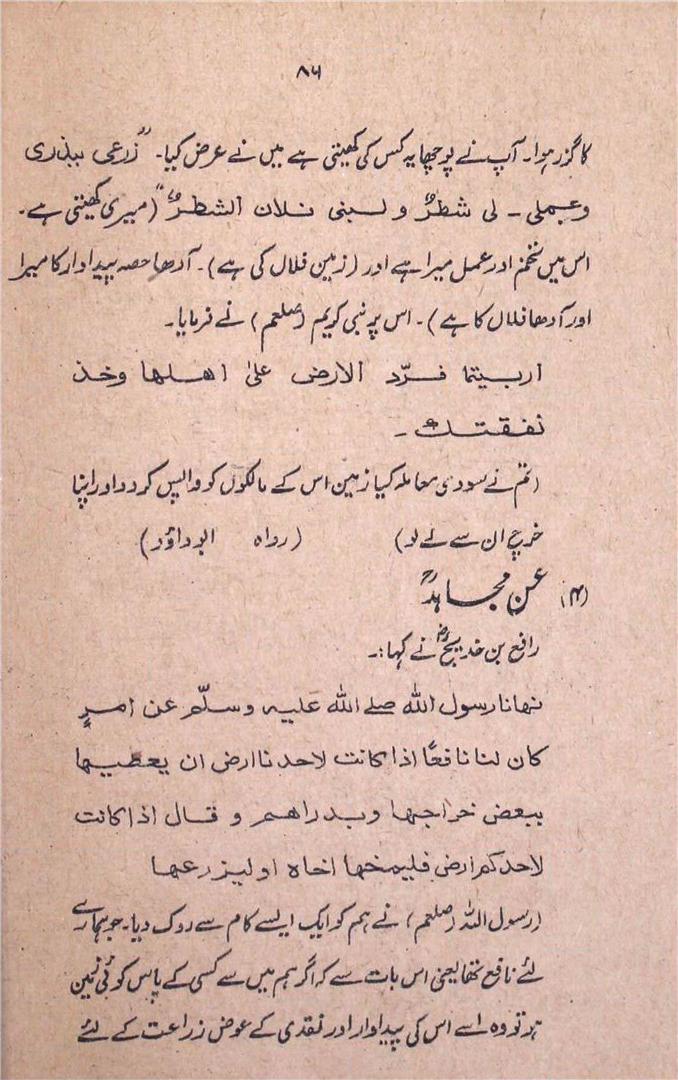 ۸۶
کا گزر ہوا۔ آپ نے پوچھا یہ کس کی کھیتی ہے میں نے عرض کیا۔ "زرعی ببذری
وعملی - لی شطرٌ و لبنی نلان الشطرُ" (میری کھیتی ہے۔
اس میں تخم اور عمل میرا ہے اور (زمین فلاں کی ہے)۔ آدھا حصہ پیداوار کا میرا
اور آدھا فلاں کا ہے)۔ اس پر نبی کریم (صلعم) نے فرمایا۔
اربیتما فرّد الارض علیٰ اھلھا وخذ
نفقتك -
(تم نے سودی معاملہ کیا زمین اس کے مالکوں کو واپس کردو اور اپنا
خرچ ان سے لے لو) (رواہ ابوداؤد)
(۴) عن مجاہدؒ
رافع بن خدیجؓ نے کہا:۔
نھانا رسول اللہ صلے اللہ علیہ وسلّم عن امرٍ
کان لنا نافعًا اذا کانت لاحدنا ارض ان یعطیھا
ببعض خراجھا وبدراھم و قال اذا کانت
لاحدکم ارض فلیمنحھا اخاہ اولیزرعھا
(رسول اللہ (صلعم) نے ہم کو ایک ایسے کام سے روک دیا۔ جو ہمارے
لئے نافع تھا یعنی اس بات سے کہ اگر ہم میں سے کسی کے پاس کوئی زمین
ہو تو وہ اسے اس کی پیداوار اور نقدی کے عوض زراعت کے لئے